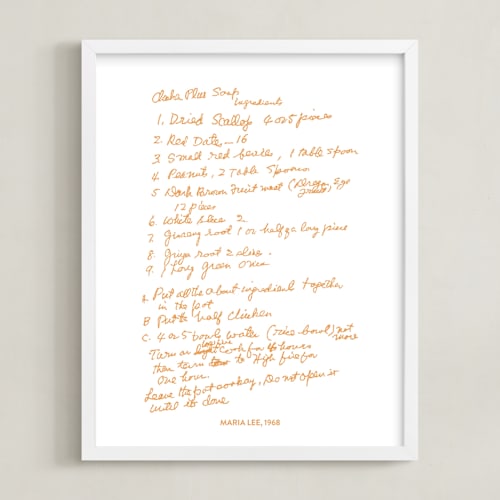 Plus Soup
Ingredients
1. Dried Scallop 4 or 5 pieces
2. Red Date... 16
3. Small red berries, 1 table spoon
4. Peanuts, 2 Table Spoons
5 Dark Brown Fruit meat (Dragon Eye
12 pieces
6. White 2
7. root 1 or half a long piece
8. root 2 slice.
9. 1 Long green
A. Put all the about ingredient together
in the pot
B Put half chicken
C. 4 or 5 bowls water (rice bowl) not more
low fire
Turn on light cook for hours
then turn to High fire for
One hour.
Leave the pot, Do not open it
until its done
MARIA LEE, 1968